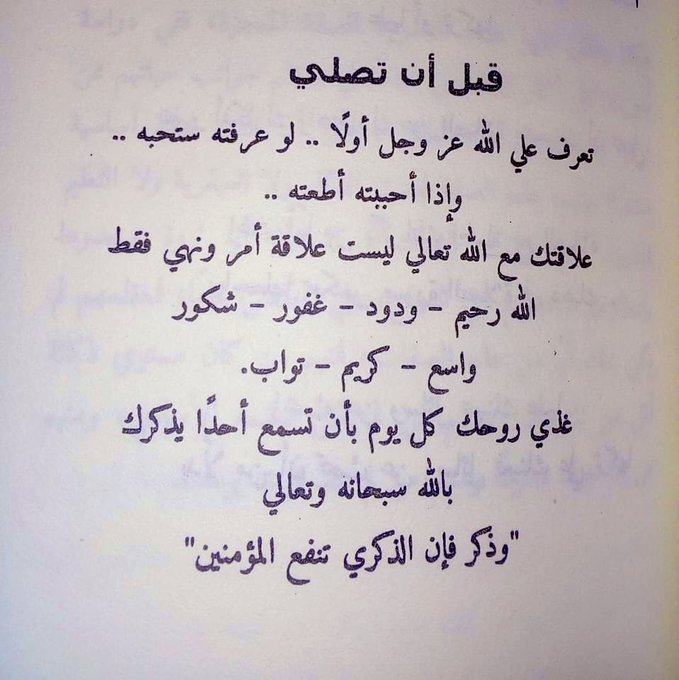 قبل أن تصلي
تعرف علي الله عز وجل أولًا .. لو عرفته ستحبه ..
وإذا أحببته أطعته ..
علاقتك مع الله تعالي ليست علاقة أمر ونهي فقط
الله رحيم – ودود – غفور – شكور
واسع – كريم – تواب.
غذي روحك كل يوم بأن تسمع أحدًا يذكرك
بالله سبحانه وتعالي
"وذكر فإن الذكري تنفع المؤمنين"